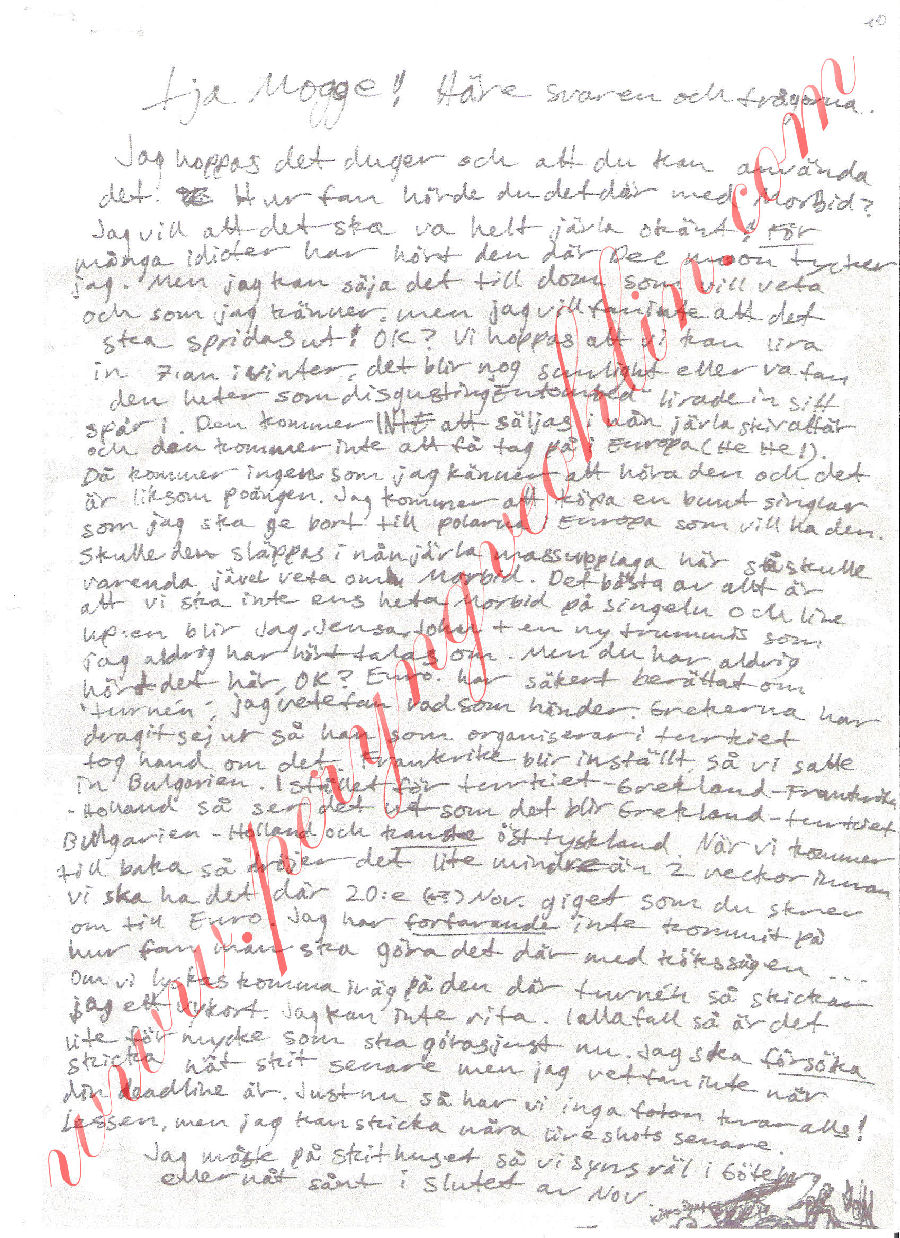 10
tja Mogge! Häre svaren och frågorna.
Jag hoppas det duger och att du kan använda
det. Hur fan hörde du det där med Morbid?
Jag vill att det ska va helt jävla okänt! För
många idioter har hört den där Dec moon tycker
jag. Men jag kan säja det till dom som vill veta
och som jag känner, men jag vill fan inte att det
ska spridas ut! OK? Vi hoppas att vi kan lira
in 7:an i vinter, det blir nog sunlight eller va fan
den heter som disgusting Entombed lirade in sitt
spår i. Den kommer INTE att säljas i nån jävla skivaffär
och den kommer inte att få tag på i Europa (He He!).
Då kommer ingen som jag känner att höra den och det
är liksom poängen. Jag kommer att köpa en bunt singlar
som jag ska ge bort till polarna i Europa som vill ha den.
Skulle den släppas i nån jävla massupplaga här så skulle
varenda jävel veta om Morbid. Det bästa av allt är
att vi ska inte ens heta Morbid på singeln och line
up:en blir Jag, Jensa, John + en ny trummis som
jag aldrig har hört talas om. Men du har aldrig
hört det här, OK? Euro. har säkert berättat om
"turnén", jag vete fan vad som händer. Grekerna har
dragit sej ur så han som organiserar i turkiet
tog hand om det. Frankrike blir inställt, så vi satte
in Bulgarien. Istället för turkiet-Grekland-Frankrike
-Holland så ser det ut som det blir Grekland-turkiet
Bulgarien-Holland och kanske östtyskland. När vi kommer
till baka så dröjer det lite mindre än 2 veckor innan
vi ska ha det där 20:e Nov. giget som du skrev
om till Euro. Jag har forfarande inte kommit på
hur fan man ska göra det där med kökssågen...
Om vi lyckas komma iväg på den där turnén så skickar
jag ett vykort. Jag kan inte rita. Iallafall så är det
lite för mycke som ska göras just nu. Jag ska försöka
skicka nåt skit senare men jag vet fan inte när
din deadline är. Just nu så har vi inga foton kvar alls!
Lessen, men jag kan skicka nåra liveshots senare.
Jag måste på skithuset så vi syns väl i Göteborg
eller nåt sånt i slutet av Nov.
www.peryngveohlin.com